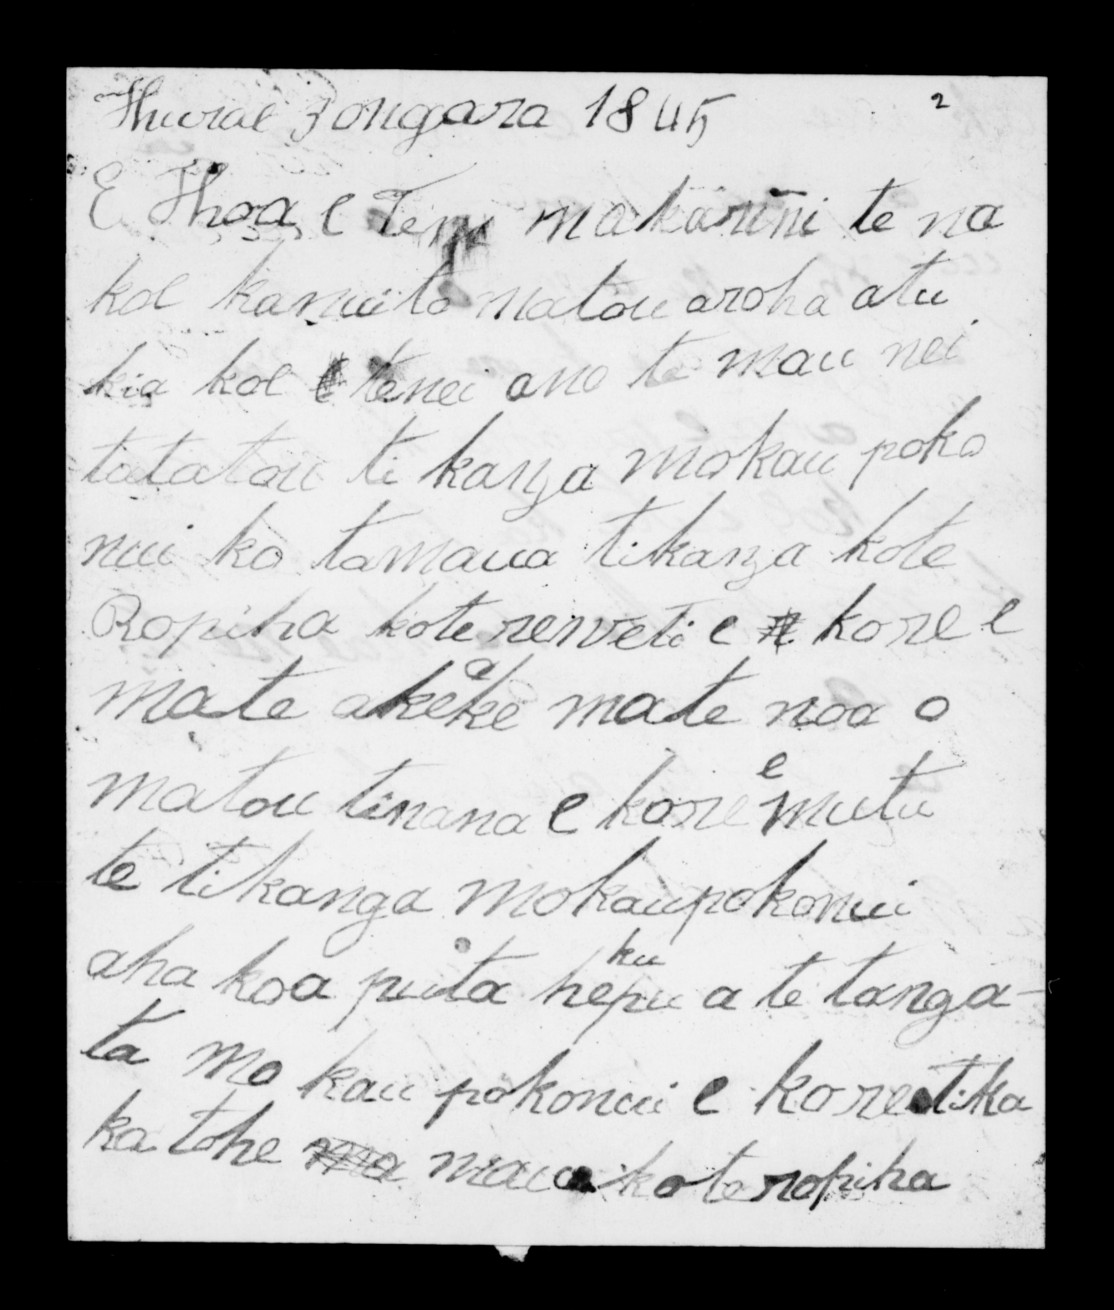 Hurae 3 ongara 1845 2
E Hhoa e Temu makarini te na
koe kanui to matou aroha atu
kia koe tenei ano te mau nei
tatatou ti kanga mokau poko
nui ko tamaua tikanga kote
Ropiha kote renveti e kore e
mate ake ake mate noa o
matou tinana e kore e mutu
te tikanga mokaupokonui
aha koa puta hepuku a te tanga-
ta mo kau pokonui e kore tika
ka tohe maua kote ropiha